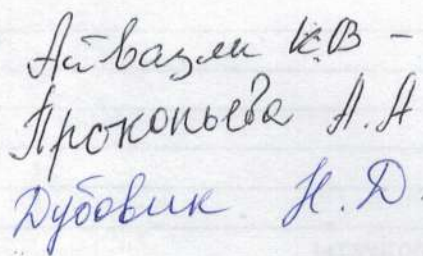 Айвазян К.В -
Прокопьева А.А
Дубовик Н.Д.